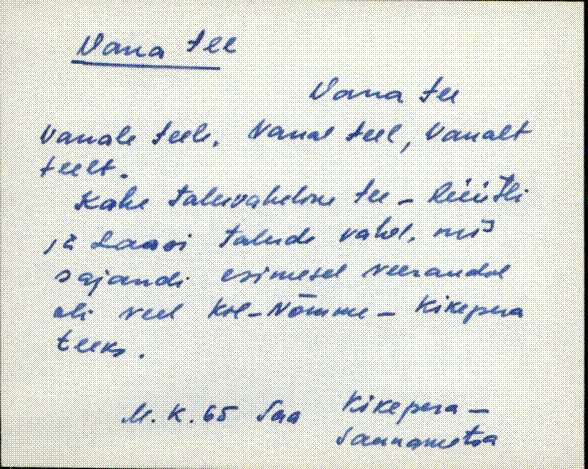 Vana tee
Vana tee
Vanale teele, Vanal teel, Vanalt
teelt.
Kahe taluvaheline tee – Rüütli
ja Laasi talude vahel, mis
sajandi esimesel veerandil
oli veel Kol-Nõmme – Kikepera
teeks.
M. K. 65 Saa Kikepera –
Saunametsa